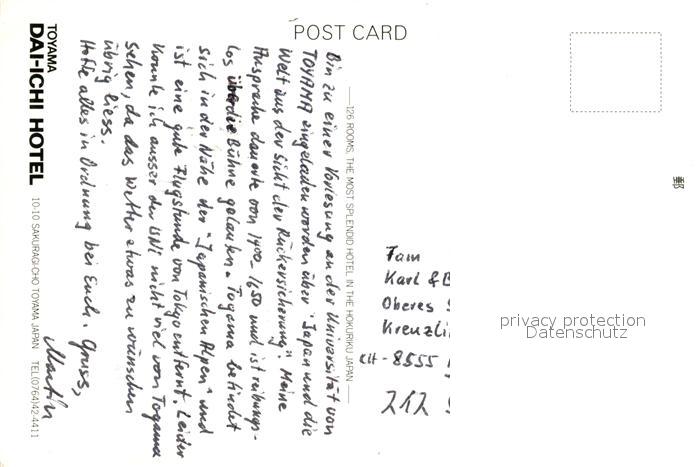 POST CARD
Bin zu einer Vorlesung an der Universität von
TOYAMA eingeladen worden über "Japan und die
Welt aus der Sicht der Rückversicherung". Meine
Ansprache dauerte von 1400-1630 und ist reibungs-
los über die Bühne gelaufen. Toyama befindet
sich in der Nähe der "Japanischen Alpen" und
ist eine gute Flugstunde von Tokyo entfernt. Leider
konnte ich ausser der UNI nicht viel von Toyama
sehen, da das Wetter etwas zu wünschen
übrig liess.
Hoffe alles in Ordnung bei Euch. Gruss,
Martin
126 ROOMS, THE MOST SPLENDID HOTEL IN THE HOKURIKU JAPAN
TOYAMA
DAI-ICHI HOTEL
10-10 SAKURAGI-CHO TOYAMA JAPAN TEL(0764)42-4411
郵
Fam
Karl &
Oberes
Kreuzli
CH-8555
212
privacy protection
Datenschutz